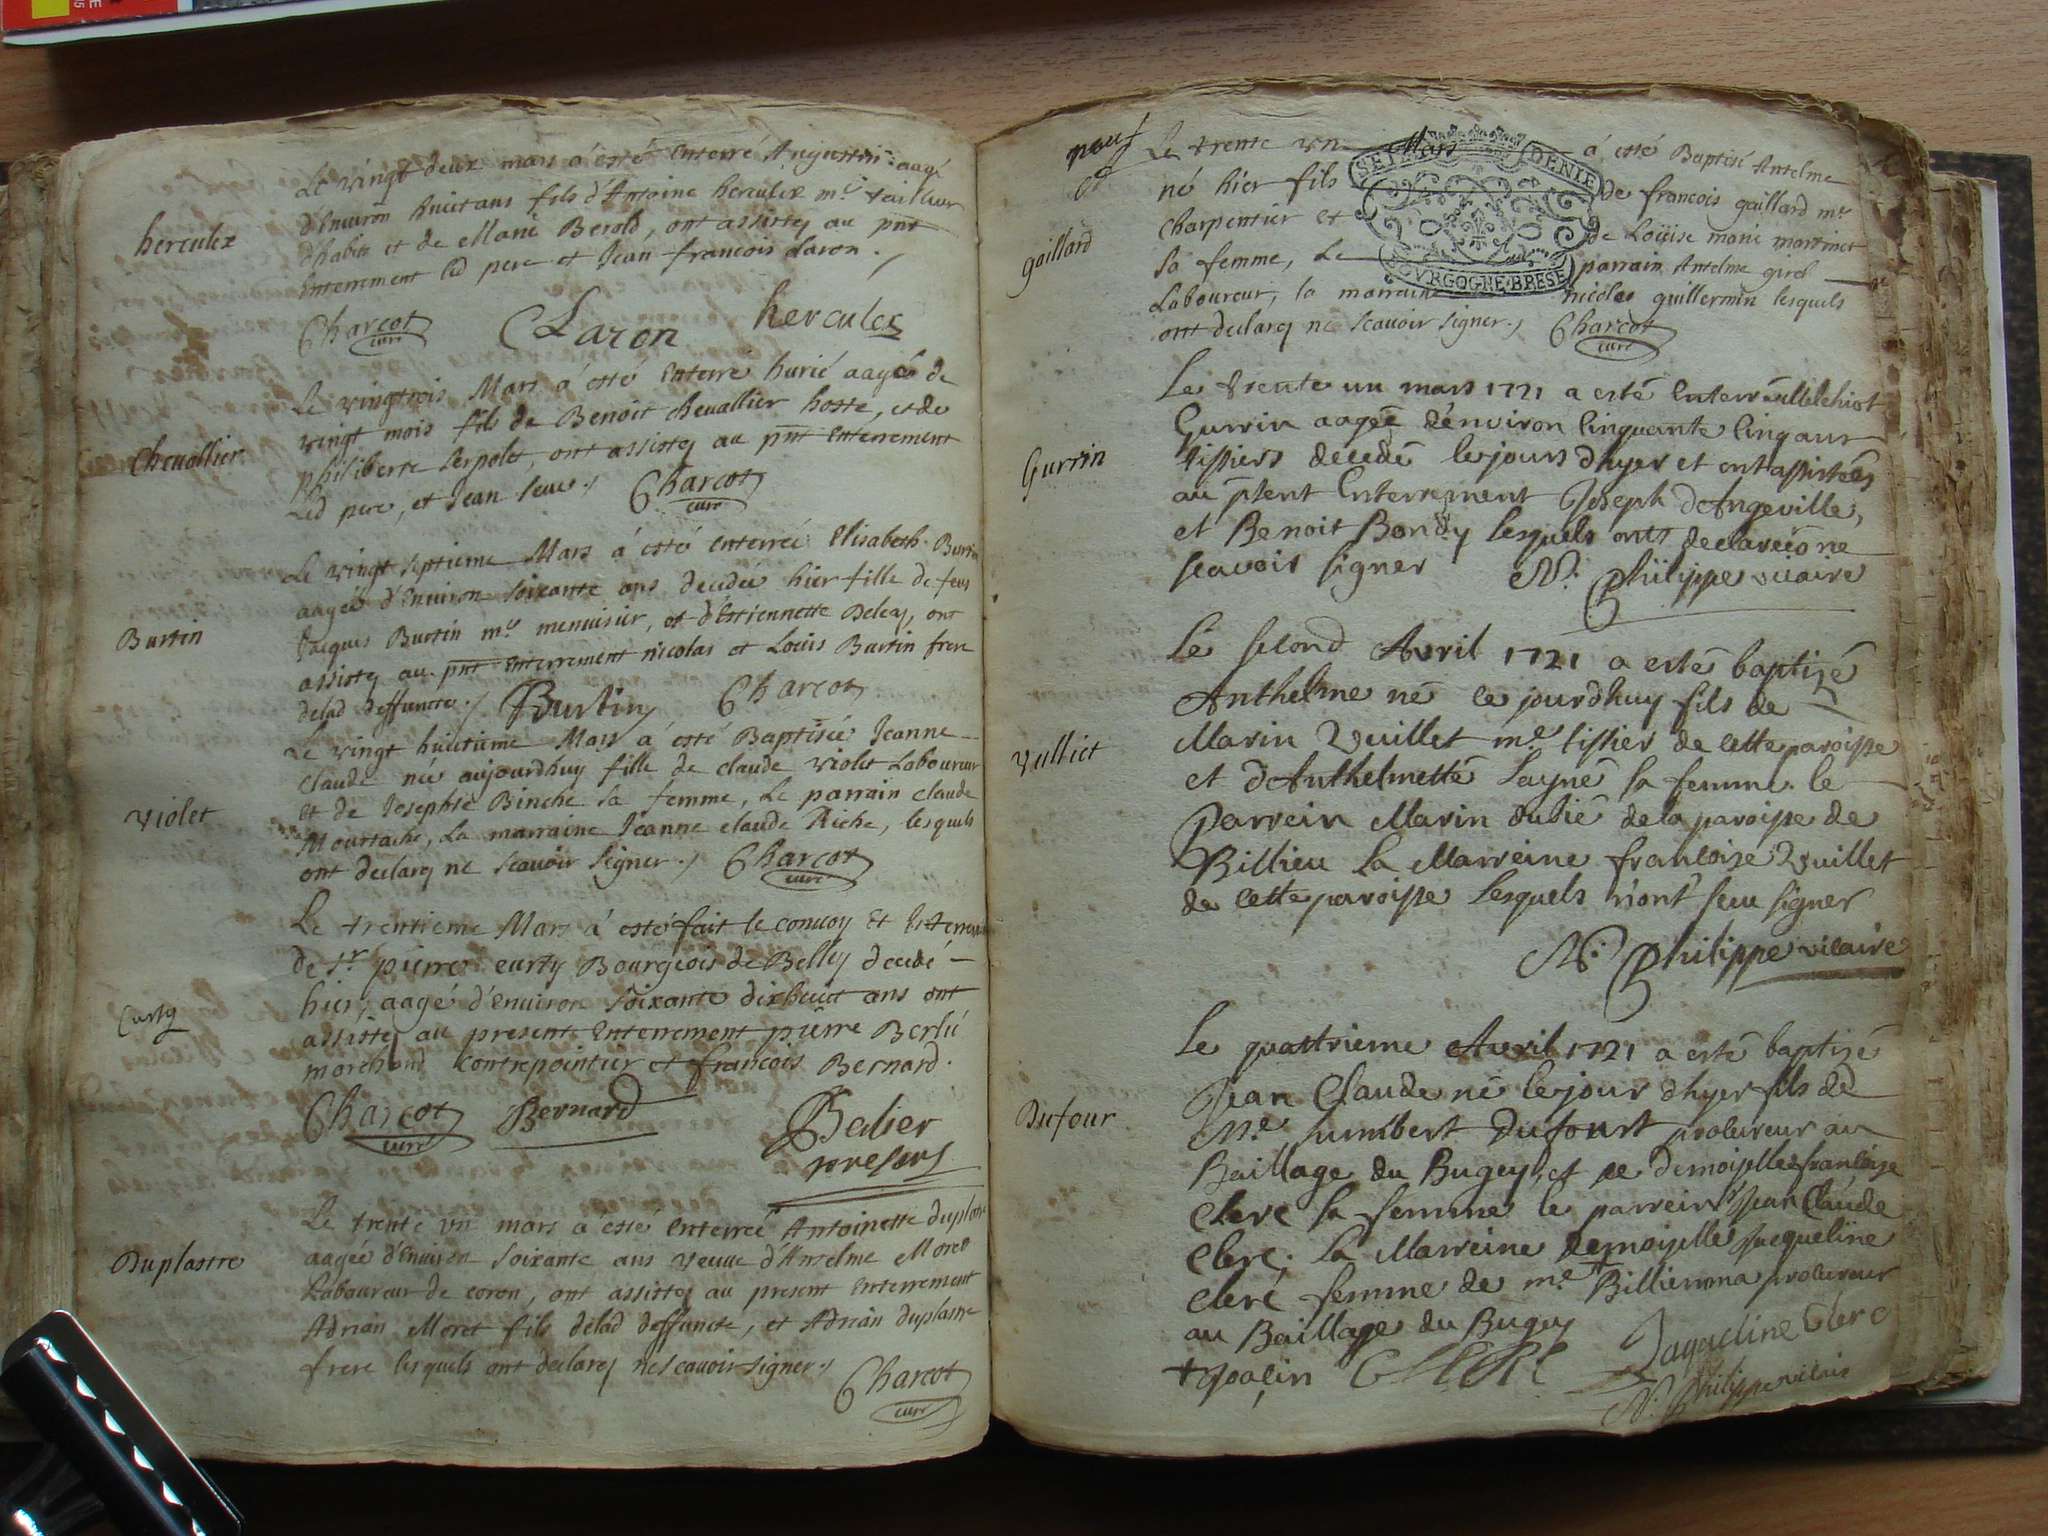 herculez
Le vingt deux mars a esté Enterré Augustin aagé
d'Environ huict ans fils d'Antoine herculez me tailleur
d'habits et de Marie Berold, ont assistez au pnt
Enterrement led pere et Jean francois Laron.
Charcot curé Laron hercules
Chevallier
Le vingtrois Mars a esté Enterré aagé de
vingt mois fils de Benoit chevallier hoste, et de
philiberte serpolet, ont assistez au pnt Enterrement
Led pere, et Jean
Charcot curé
Burtin
Le vingt septieme Mars a esté enterrée Elisabeth Burtin
aagée d'Environ soixante ans decedée hier fille de feus
Jacques Burtin me menuisier, et d'Estiennette ont
assistez au pnt Enterrement nicolas et Louis Burtin frere
delad deffuncte.
Burtin Charcot
Violet
Le vingt huictieme Mars a esté Baptisée Jeanne
claude née aujourdhuy fille de claude violet Laboureur
et de Josephte Binche sa femme, Le parrain claude
La marraine Jeanne claude Riche, lesquels
ont declarez ne scavoir signer.
Charcot curé
Curty
Le trentieme Mars a esté fait le convoy Et Enterrem
de Sr pierre curty Bourgeois de Belley decedé
hier, aagé d'Environ soixante dixhuict ans ont
assistez au present Enterrement pierre
marchand contrepointier et francois Bernard.
Charcot curé Bernard
presens
Duplastre
Le trente un mars a esté Enterrée Antoinette duplastre
aagée d'Environ soixante ans veuve d'Anselme Moret
Laboureur de coron, ont assistez au present Enterrement
Adrian Moret fils delad deffuncte, et Adrian duplastre
frere lesquels ont declarez ne scavoir signer.
Charcot curé
neuf
gaillard
Le trente un Mars a esté Baptisé Anselme
né hier fils de francois gaillard me
charpentier et de Loüise marie martinet
sa femme, Le parrain Anselme girod
Laboureur, la marraine nicolas guillermin lesquels
ont declarez ne scavoir signer.
Charcot curé
SEI DENIE
BOVRGOGNE·BRESE
Gurrin
Le trente un mars 1721 a esté Enterré
Gurrin aagée d'environ Cinquante Cinq ans
tissiers decedé le jours d'hyer et ont assistées
au psent Enterrement Joseph d'Angeville,
et Benoit Bondy lesquels onts declarée ne
scavoir signer
N. Philippe vicaire
Vulliet
Le second Avril 1721 a esté baptizé
Anthelme né ce jourdhuy fils de
Marin Vuillet me tissier de cette paroisse
et d'Anthelmette Layné sa femme le
Parrein Marin dulié de la paroisse de
Billieu La Marreine francoise Vuillet
de cette paroisse Lesquels n'ont sceu signer
N. Philippe vicaire
Dufour
Le quattrieme Avril 1721 a esté baptizé
Jean Claude né le jour d'hyer fils de
Me humbert Dufourt procureur au
Baillage du Bugey et de Demoiselle francoise
Clerc sa femme le parrein Sr Jean Claude
Clerc. La Marreine Demoiselle Jacqueline
Clerc femme de me Billiemma procureur
au Baillage du Bugey
CLERC Jaqueline Clerc
N. Philippe vicaire